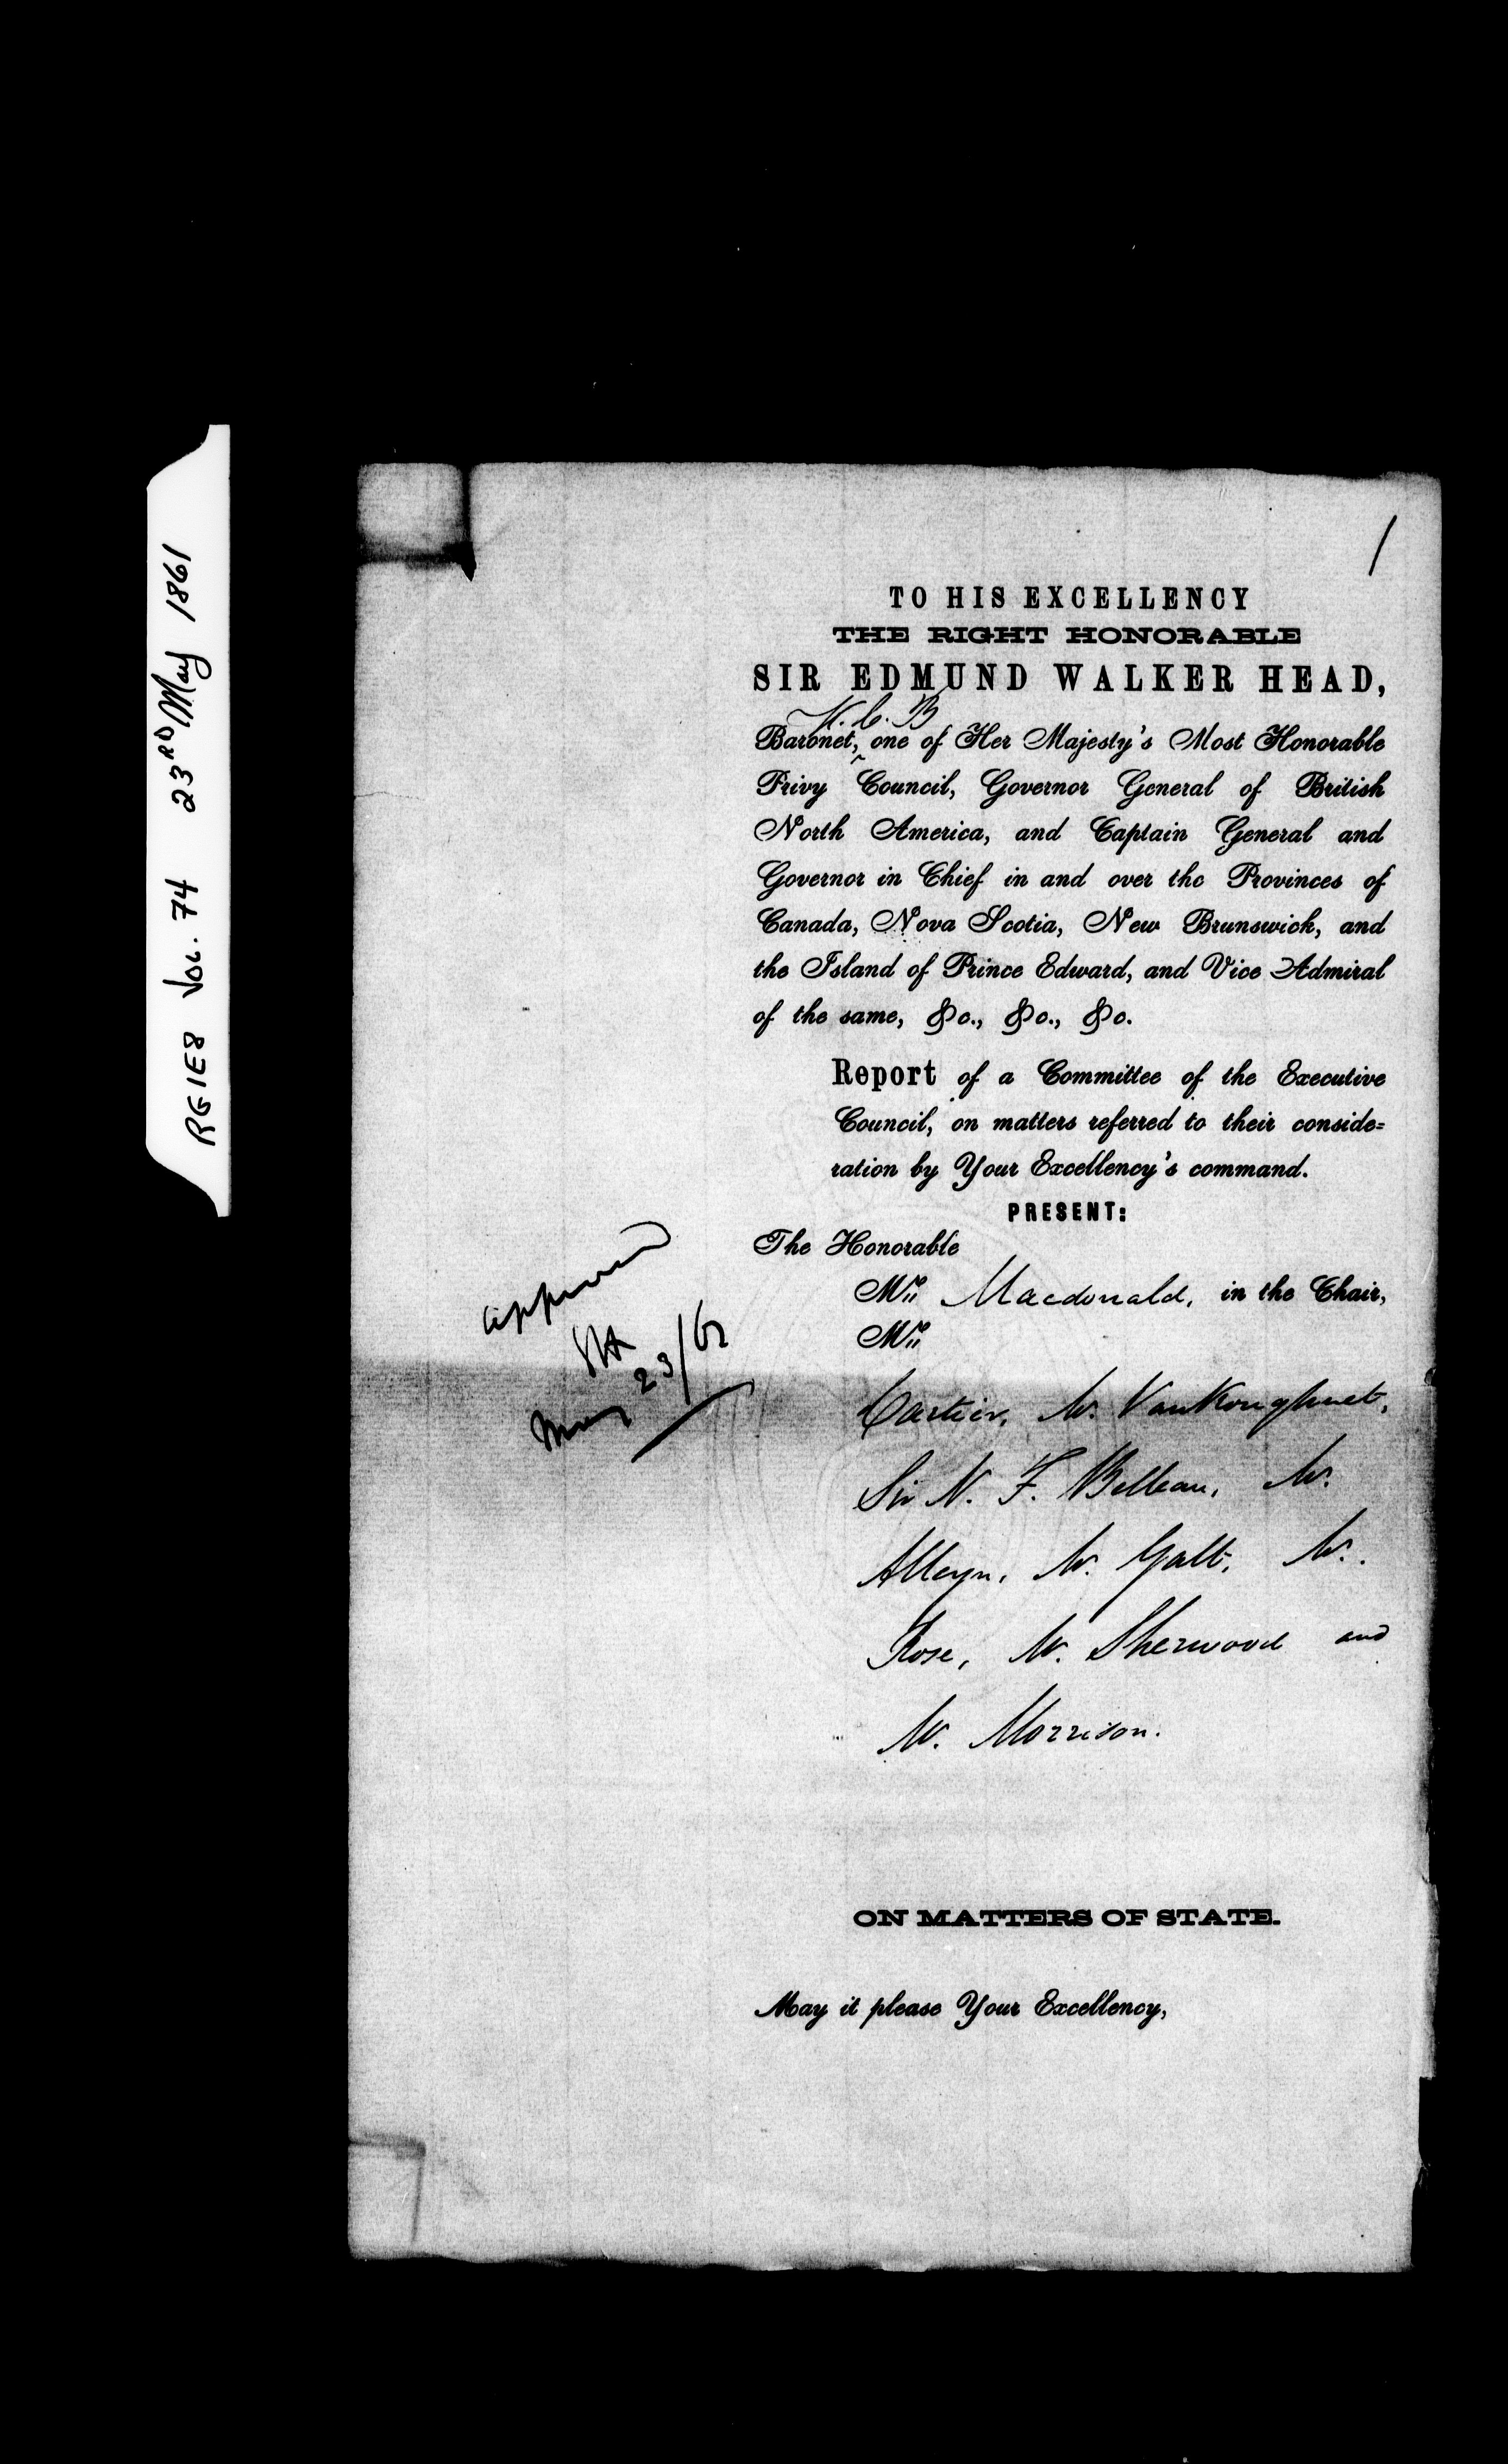 RG1E8 Vol. 74 23RD May 1861
1
TO HIS EXCELLENCY
THE RIGHT HONORABLE
SIR EDMUND WALKER HEAD,
K. C. B
Baronet, one of Her Majesty's Most Honorable
Privy Council, Governor General of British
North America, and Captain General and
Governor in Chief in and over the Provinces of
Canada, Nova Scotia, New Brunswick, and
the Island of Prince Edward, and Vice Admiral
of the same, &c., &c., &c.
Report of a Committee of the Executive
Council, on matters referred to their conside=
ration by Your Excellency's command.
PRESENT:
The Honorable
Mr. Macdonald, in the Chair,
Mr.
Cartier, Mr. VanKoughnet,
Sir N. F. Belleau, Mr.
Alleyn, Mr. Galt, Mr.
Rose, Mr. Sherwood and
Mr. Morrison.
approved
May 23/61
ON MATTERS OF STATE.
May it please Your Excellency,